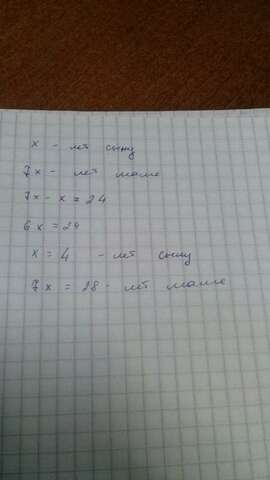 x - лет сыну
7x - лет маме
7x - x = 24
6x = 24
x = 4 - лет сыну
7x = 28 - лет маме